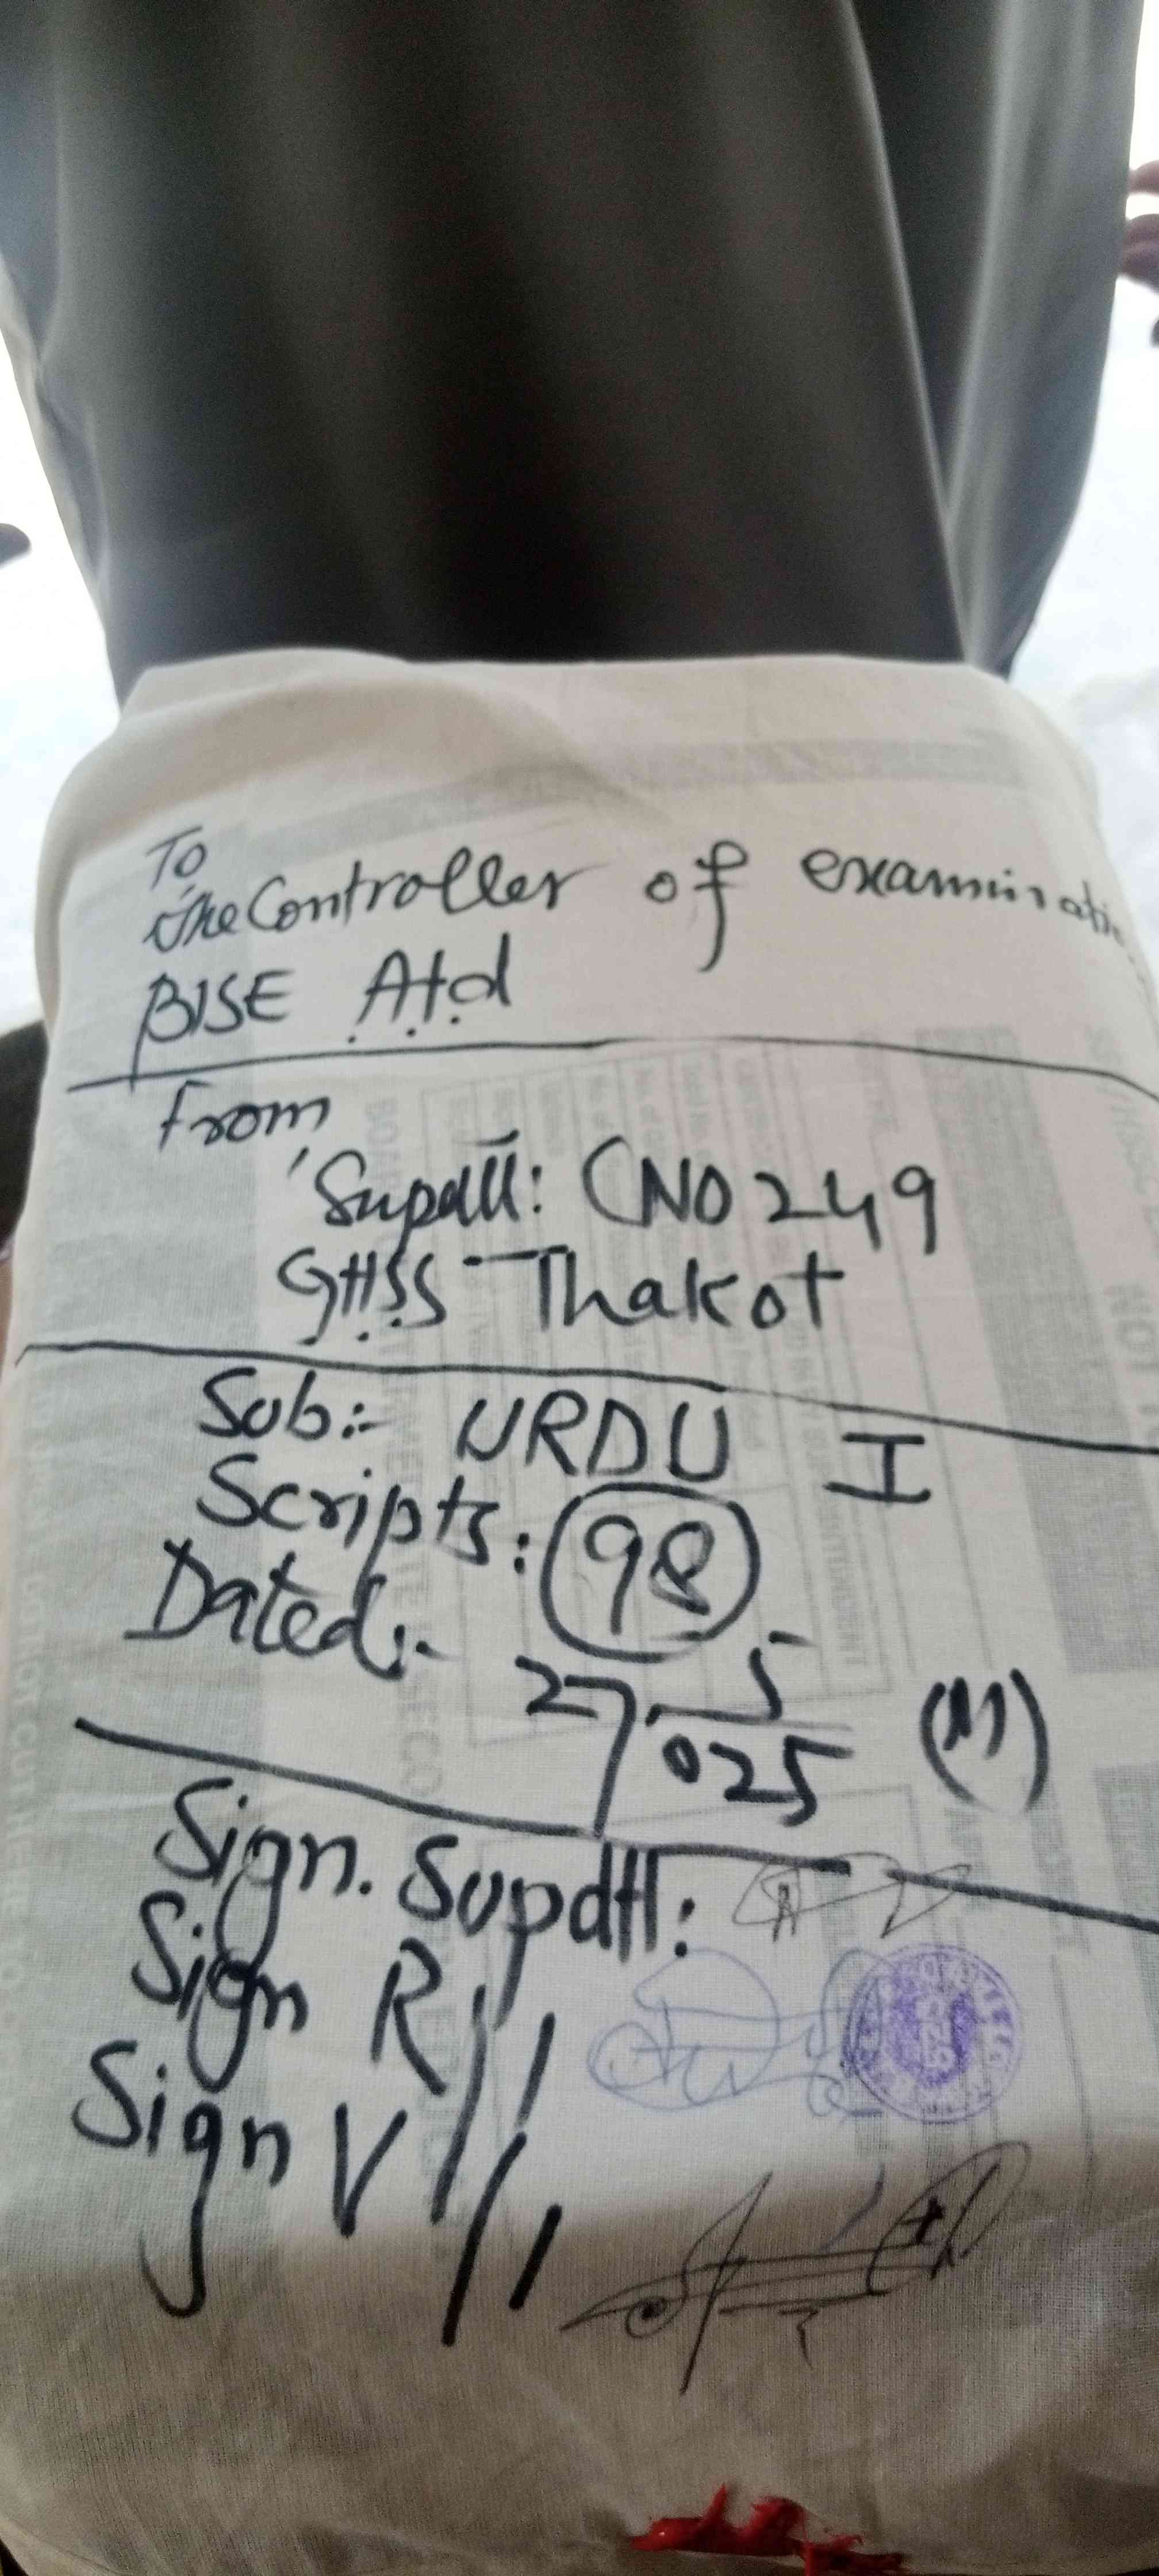 To
The Controller of examinatio
BISE A.t.d
From
Supdtt: CNO 249
G.H.S.S Thakot
Sub:- URDU I
Scripts: 98
Dated:- 27 5 025 (M)
Sign. Supdtt:
Sign R //
Sign V //